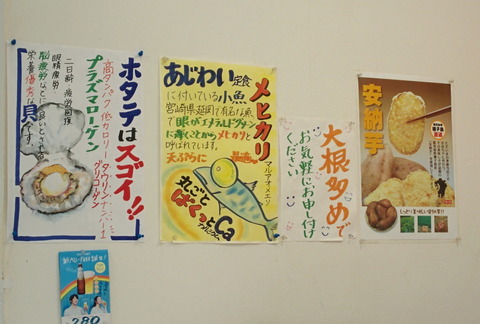 ホタテはスゴイ!!
高タンパク 低カロリー タウリン
プラズマローゲン グリコーゲン
二日酔 疲労回復
眼精疲労
脳疲労などに良いとされる
栄養優秀な貝です。
あじわい定食
に付いている小魚
宮崎県延岡で有名な魚
で眼がエメラルドグリーン
に輝くことからメヒカリと
呼ばれています。
天ぷらに
メヒカリ
マルアオメエソ
丸ごと
ぱくっと
Ca
カルシウム
大根多めで
お気軽にお申し付け
ください
安納芋
280